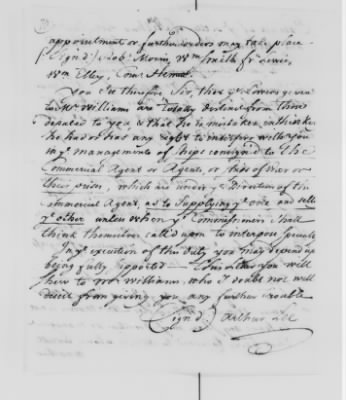 appointment or further orders may take place.
(Signd) Robt Morris, Wm Smith, fr Lewis,
Wm Ellery,
You See therefore Sir, that ye Powers given
to Mr Williams are totally distinct from those
deputed to you & that he is mistaken in thinking
he had or has any right to interfere with you
in ye management of ships consigned to the
Commercial Agent or Agents, or ships of War or
their prizes, which are under ye Direction of the
Commercial Agent, as to Supplying ye one and selling
ye other unless when ye Commissioners shall
think themselves called upon to interpose
In ye execution of this duty you may depend upon
being fully supported — you will
shew to Mr Williams, who I doubt not will
desist from giving you any further trouble
(Signd) Arthur Lee